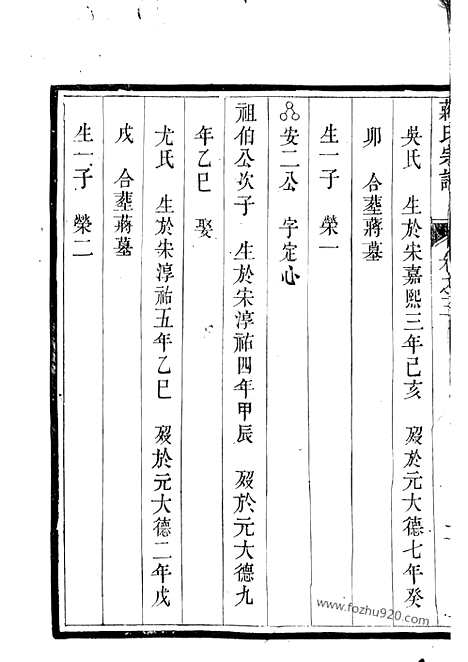 蔣氏宗譜 卷之三
吳氏 生於宋嘉熙三年己亥 歿於元大德七年癸
卯 合塟蔣墓
生一子 榮一
安二公 字定心
祖伯公次子 生於宋淳祐四年甲辰 歿於元大德九
年乙巳 娶
尤氏 生於宋淳祐五年乙巳 歿於元大德二年戊
戌 合塟蔣墓
生一子 榮二
www.fozhu920.com